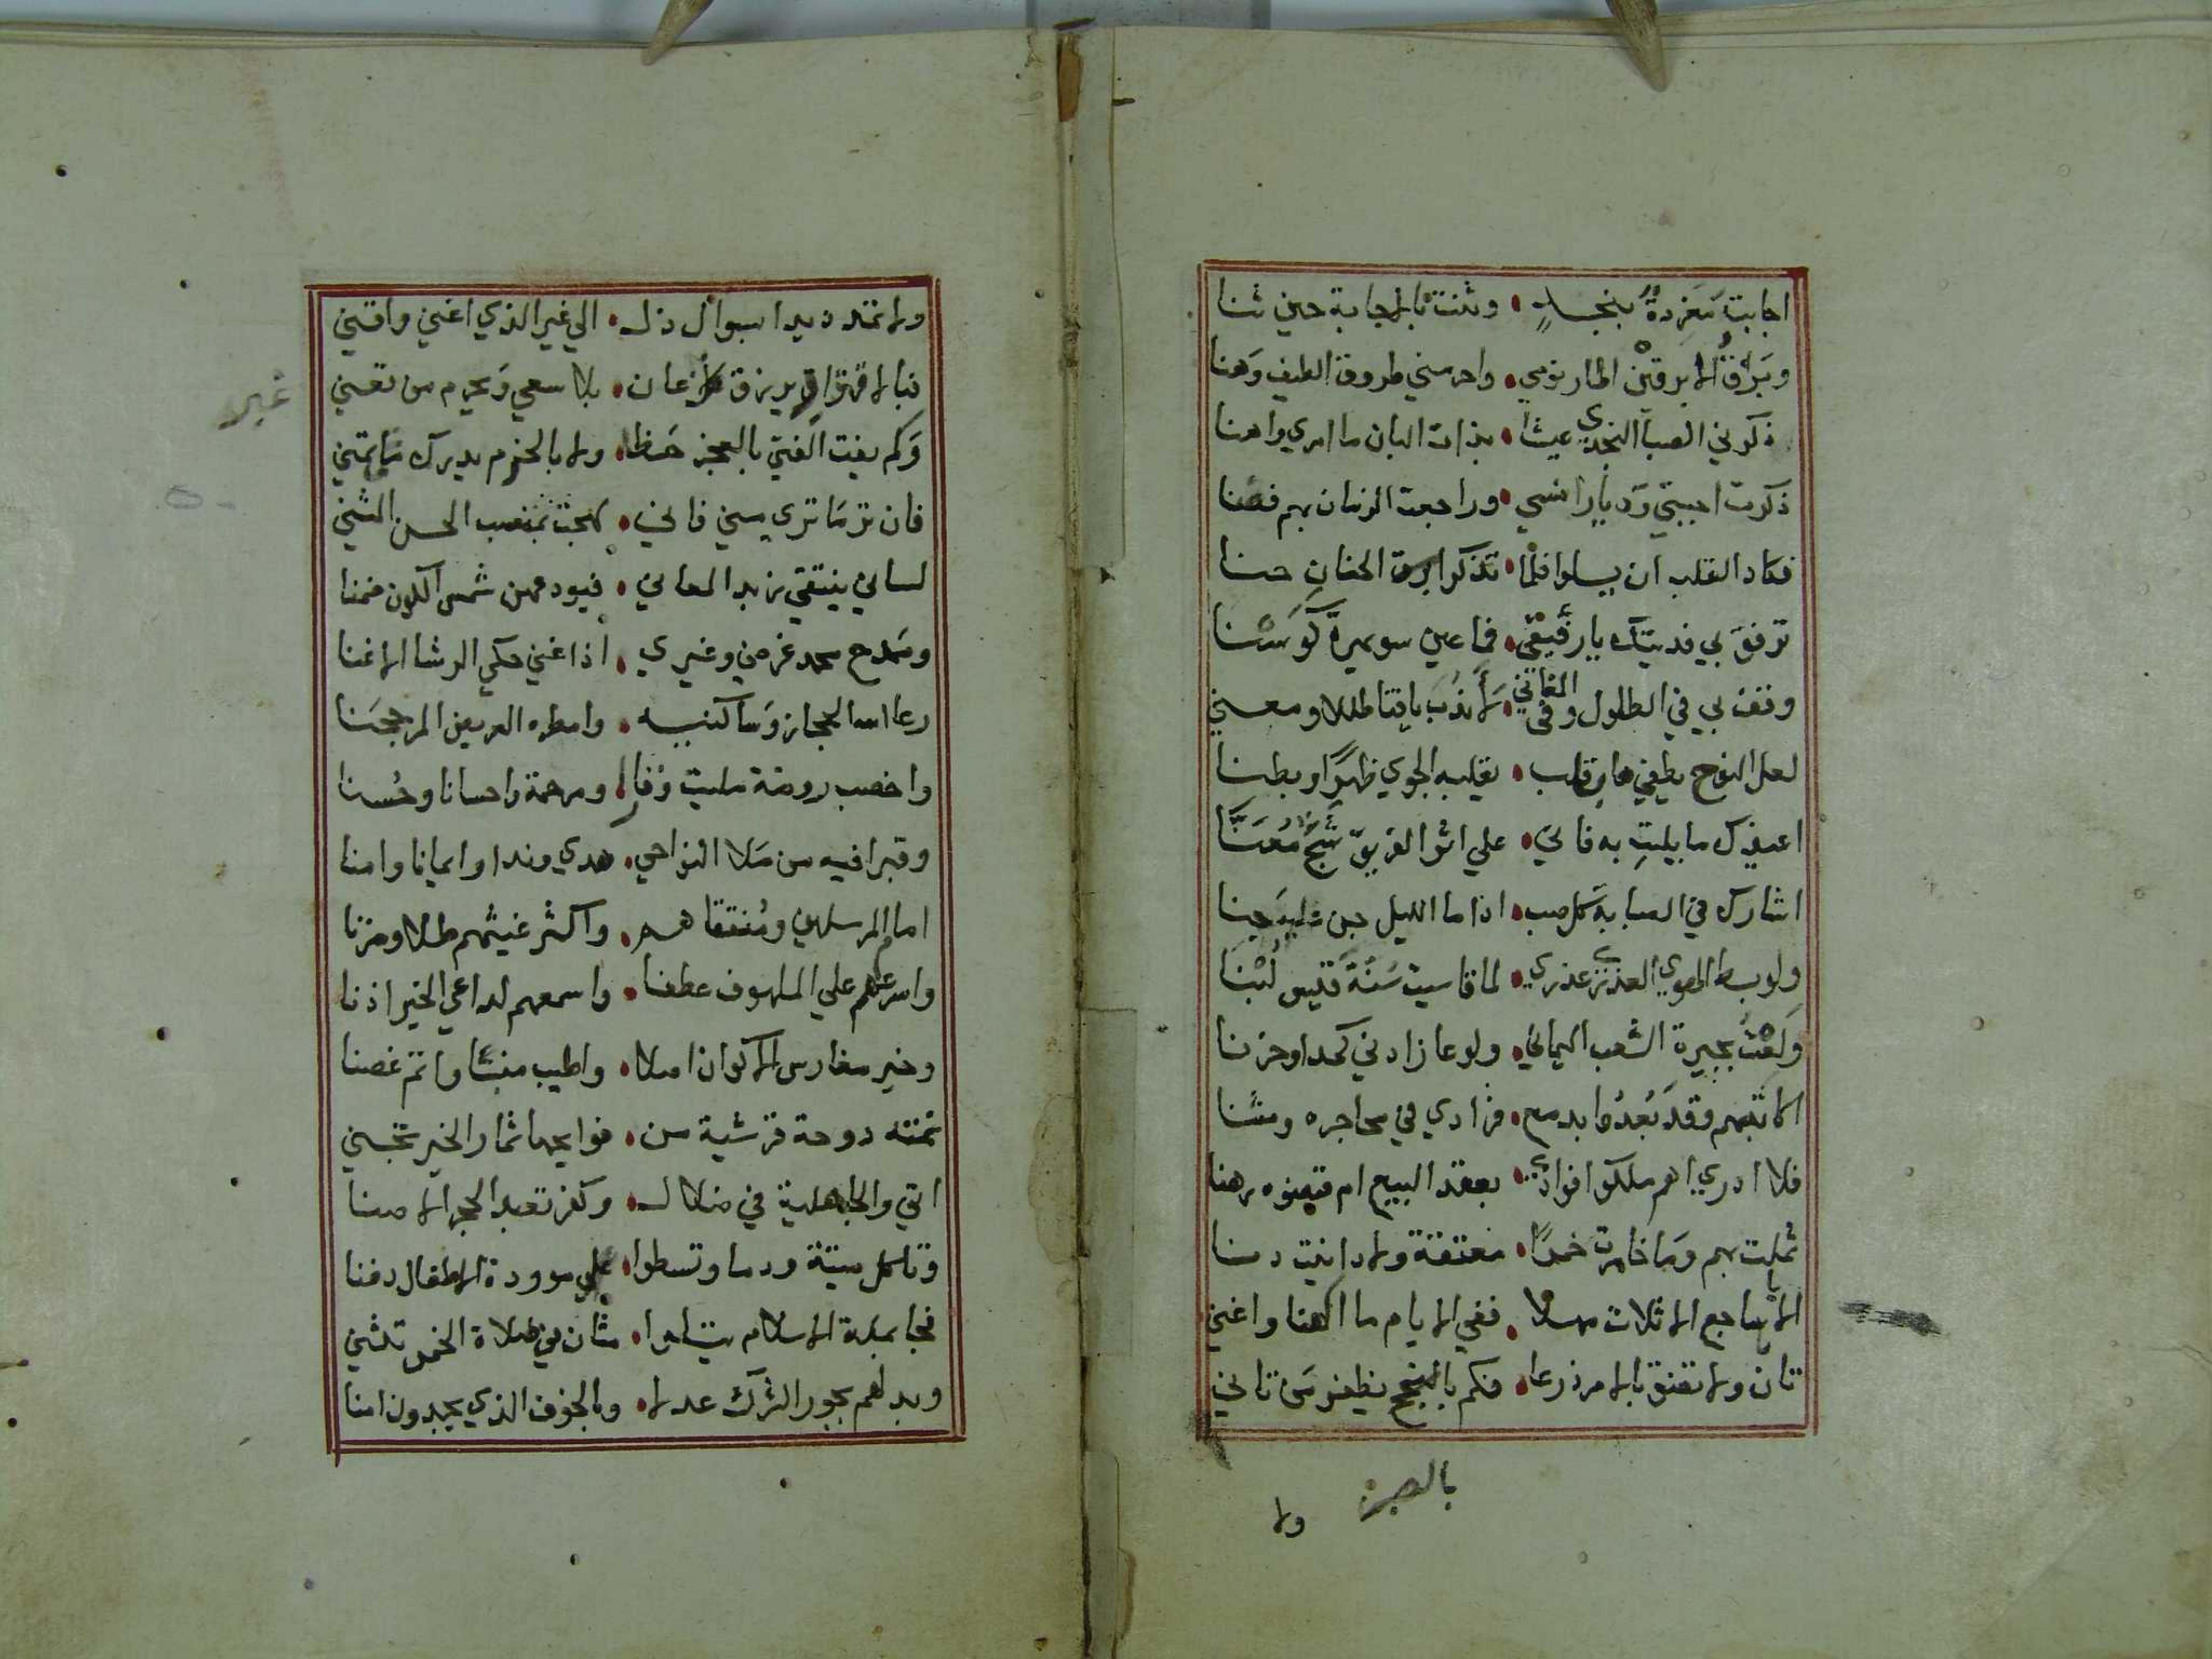 اجابت مغردة بنجد • وثنت بالاجابة حين ثنا
وبرق الابرقين اطار نومي • واحرمني طروق الطيف وهنا
ذكرني الصبا النجدي عيشا • بذات البان ما امري واهنا
ذكرت احبتي وديار انسي • وراجعت الزمان بهم فضنا
فكاد القلب ان يسلوا فلما • تذكر ابرق الحنان حنا
ترفق بي فديتك يا رفيقي • فما عين سويهرة كوسنا
وقف بي في الطلول وفي المغاني • لاندب يا فتا طللا ومعني
لعل النوح يطفي نار قلب • يقلبه الجوي ظهرا وبطنا
اعيذك ما بليت به فاني • علي اثر الفريق شج معنا
اشارك في الصبابة كل صب • اذا ما الليل جن عليه جنا
ولو بسط الهوي العذري عذري • لما قاسيت سنة قيس لبنا
ولعت بجيرة الشعب اليماني • ولوعا زادني كمدا وحزنا
اكاتبهم وقد بعدوا بدمع • فرادي في محاجره ومثنا
فلا ادري اهم ملكوا فوادي • بعقد البيع ام قبضوه رهنا
ثملت بهم وما خامرت خمرا • معتقة ولا دانيت دنا
الا يا ساجع الاثلات مهلا • ففي الايام ما الهنا واغني
تان ولا تضق بالامر ذرعا • فكم بالنجح يظفر من تاني
بالصبر
ولا
ولا تمدد يدا بسوال ذل • الي غير الذي اغني واقني
فبالاقدار يرزق كل عان • بلا سعي ويحرم من تعني
غير
وكم يفت الفتي بالعجز حظا • ولا بالحزم يدرك ما تمني
فان تر ما تري مني فاني • لهجت بمنصب الحسن المثني
لساني ينتقي زبد المعاني • فيودعهن شمس الكون ضمنا
ومدح محمد غرضي وغيري • اذا غني حكي الرشا الاغنا
رعا الله الحجاز وساكنيه • وامطره العريض المرجحنا
واخصب روضة ملئت وفاء • ومرحمة واحسانا وحسنا
وقبرا فيه من ملا النواحي • هدي وندا وايمانا وامنا
امام المرسلين ومنتقاهم • واكثر غيثهم طلا ومزنا
واسرعهم علي الملهوف عطفا • واسمعهم لداعي الخير اذنا
وخير مغارس الاكوان اصلا • واطيب منبتا واتم غصنا
نمته دوحة قرشية من • فوايحها ثمار الخير تجني
اتي والجاهلية في ضلال • وكفر تعبد الحجر الاصنا
وتاكل ميتة ودما وتسطوا • علي موودة الاطفال دفنا
فجا بملة الاسلام يتلوا • مثان في صلاة الخمس تثني
وبدلهم بجور الشرك عدلا • وبالخوف الذي يجدون امنا